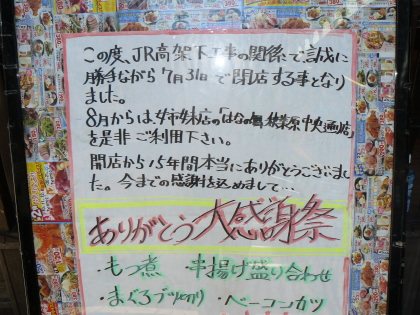 この度、JR高架下工事の関係で誠に
勝手ながら7月31日で閉店する事となり
ました。
8月からは姉妹店の「はなの舞 秋葉原中央通店」
を是非ご利用下さい。
開店から15年間本当にありがとうございまし
た。今までの感謝を込めまして…
ありがとう大感謝祭
・もつ煮 ・串揚げ盛り合わせ
・まぐろブツ切り ・ベーコンカツ